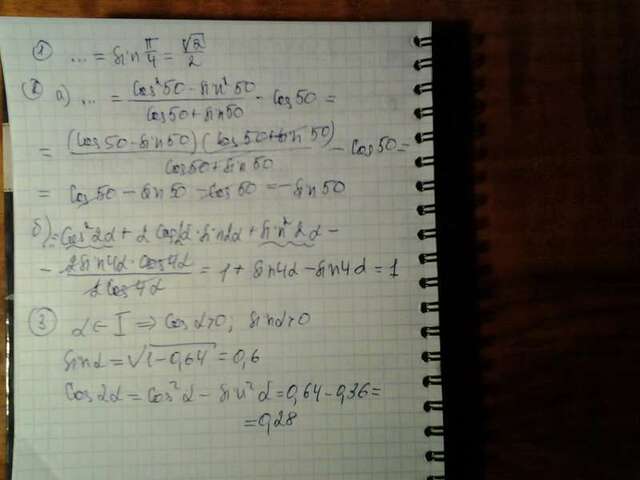 ① ... = sin π/4 = √2/2
② а) ... = (cos²50 - sin²50)/(cos50 + sin50) - cos50 =
= (cos50 - sin50)(cos50 + sin50)/(cos50 + sin50) - cos50 =
= cos50 - sin50 - cos50 = - sin50
б) ... = cos²2α + 2cos2α·sin2α + sin²2α -
- 2sin4α·cos4α/2cos4α = 1 + sin4α - sin4α = 1
③ α ∈ I ⇒ cosα>0; sinα>0
sinα = √1-0,64 = 0,6
cos2α = cos²α - sin²α = 0,64 - 0,36 =
= 0,28